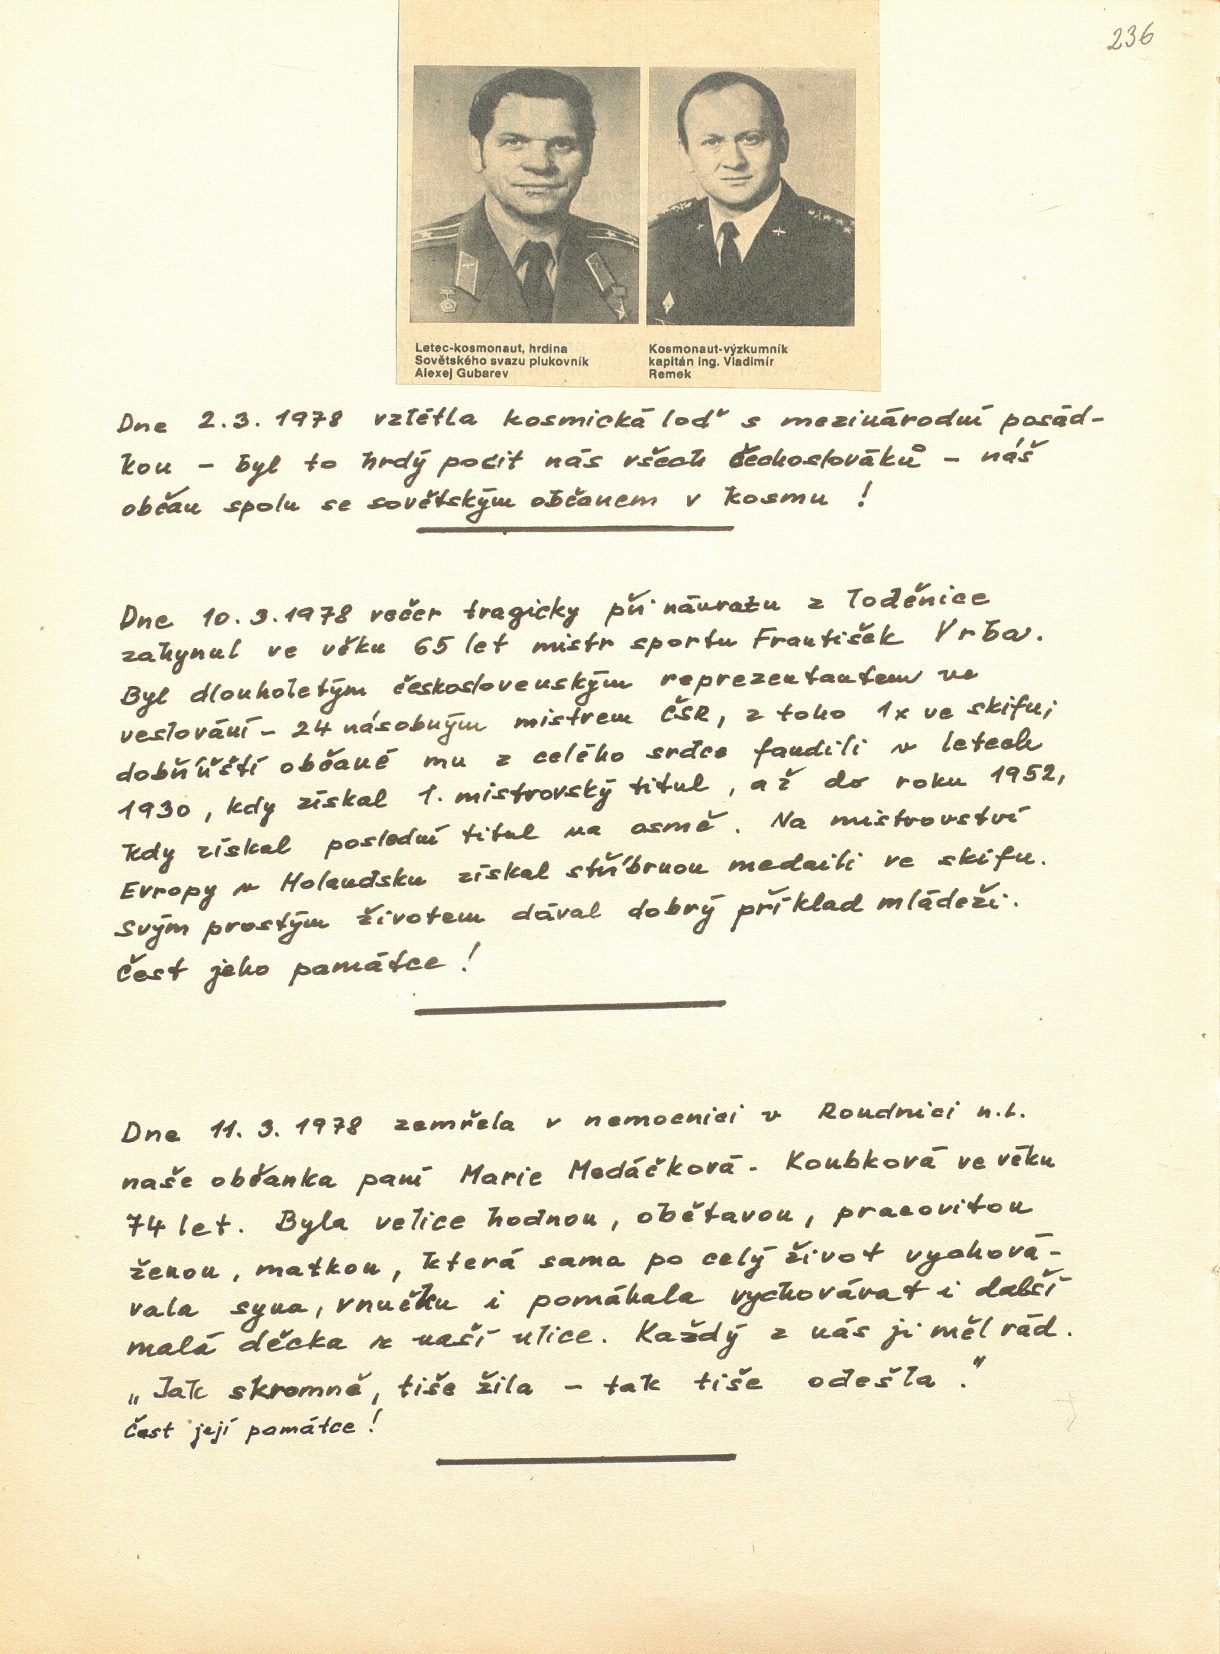 236
Letec-kosmonaut, hrdina
Sovětského svazu plukovník
Alexej Gubarev
Kosmonaut-výzkumník
kapitán ing. Vladimír
Remek
Dne 2.3.1978 vzlétla kosmická loď s mezinárodní posád-
kou – byl to hrdý pocit nás všech čechoslováků – náš
občan spolu se sovětským občanem v kosmu !
Dne 10.3.1978 večer tragicky při návratu z loděnice
zahynul ve věku 65 let mistr sportu František Vrba.
Byl dlouholetým československým reprezentantem ve
veslování – 24 násobným mistrem ČSR, z toho 1x ve skifu;
dobříňští občané mu z celého srdce fandili v letech
1930, kdy získal 1. mistrovský titul, až do roku 1952,
kdy získal poslední titul na osmě. Na mistrovství
Evropy v Holandsku získal stříbrnou medaili ve skifu.
Svým prostým životem dával dobrý příklad mládeži.
Čest jeho památce !
Dne 11.3.1978 zemřela v nemocnici v Roudnici n.L.
naše občanka paní Marie Medáčková - Koubková ve věku
74 let. Byla velice hodnou, obětavou, pracovitou
ženou, matkou, která sama po celý život vychová-
vala syna, vnučku i pomáhala vychovávat i další
malá děcka z naší ulice. Každý z nás ji měl rád.
„Jak skromně, tiše žila – tak tiše odešla."
Čest její památce !